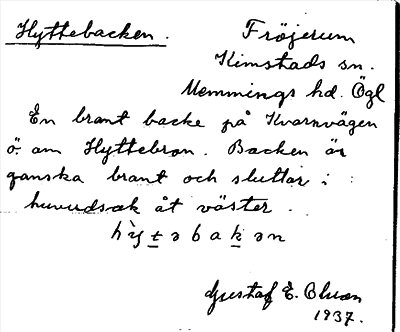 Hyttebacken.
Fröjerum
Kimstads sn.
Memmings hd. Ögl
En brant backe på Kvarnvägen
ö. om Hyttebron. Backen är
ganska brant och sluttar i
huvudsak åt väster.
hỳt̲əbak̲ən
Gustaf E. Olson
1937.